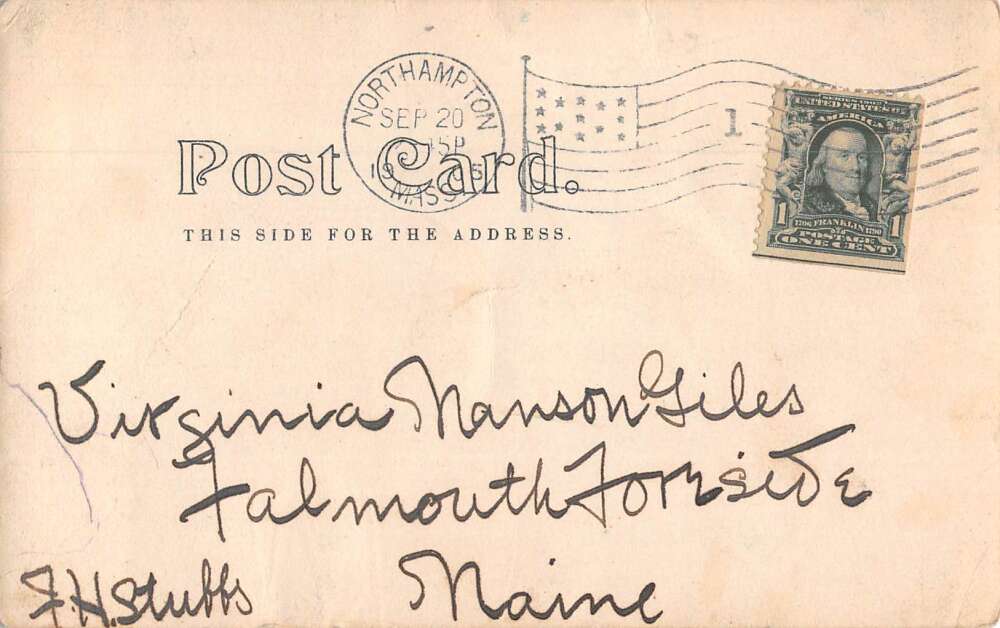 NORTHAMPTON
SEP 20
MASS.
1
SERIES 1902
UNITED STATES OF
AMERICA
1 1
1706 FRANKLIN 1790
POSTAGE
ONE CENT
Post Card.
THIS SIDE FOR THE ADDRESS.
Virginia Manson Giles
Falmouth Foreside
F.H. Stubbs Maine